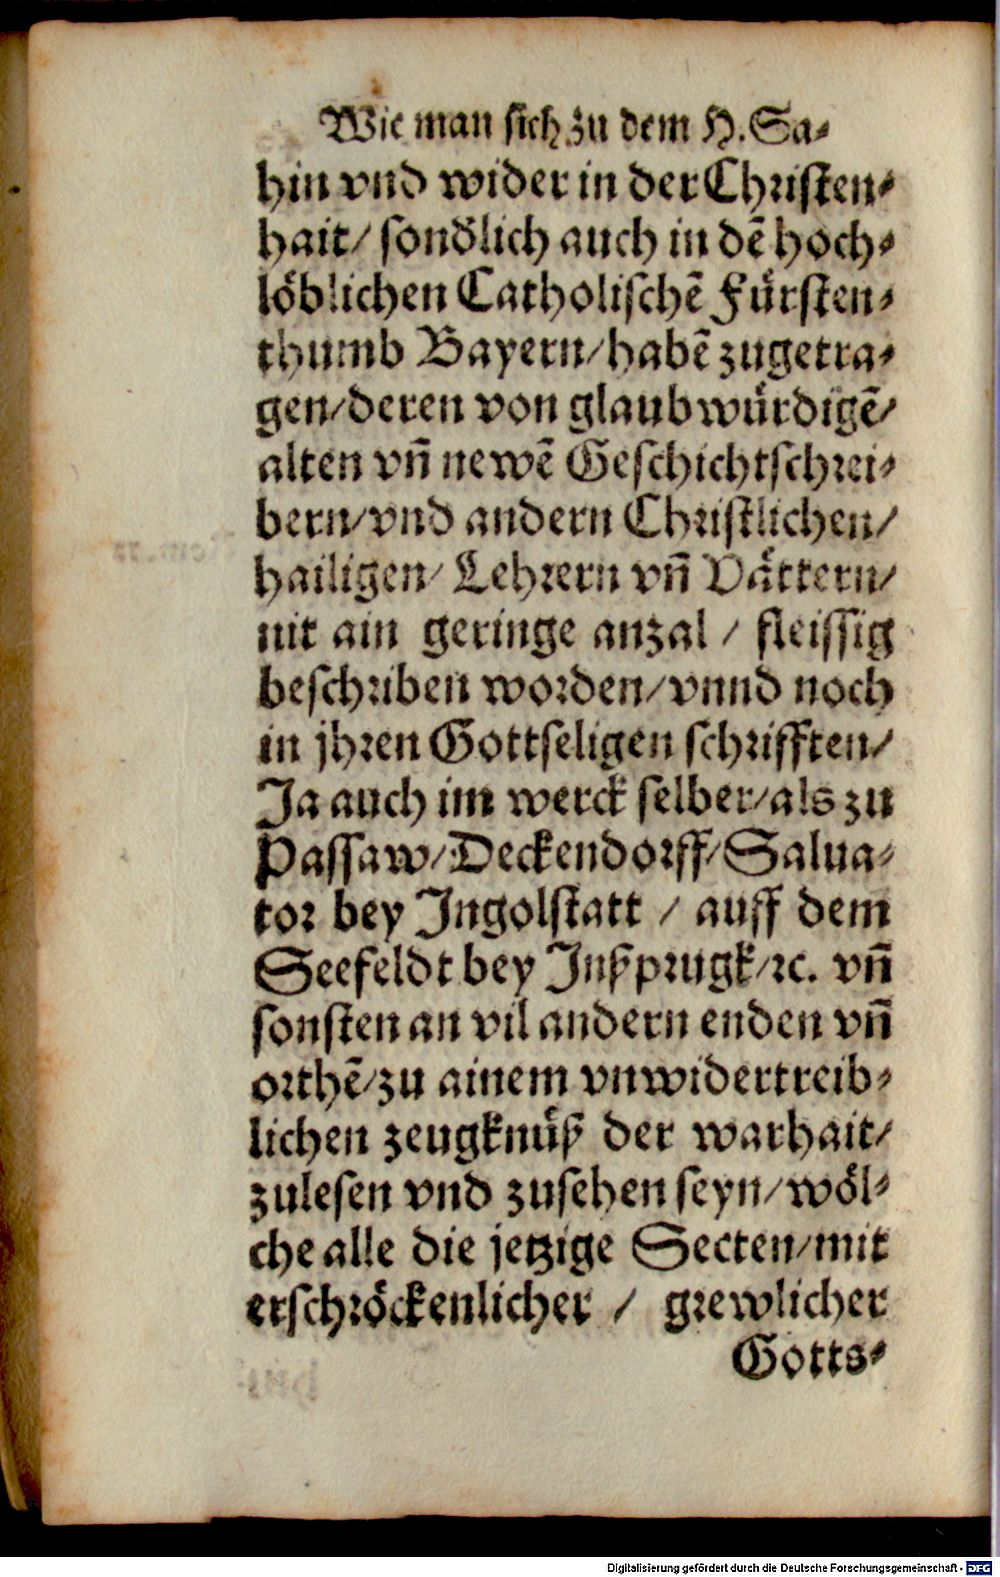 Wie man sich zu dem H. Sa⸗
hin vnd wider in der Christen⸗
hait/ sondĕlich auch in dē hoch⸗
löblichen Catholischē Fürsten⸗
thumb Bayern/habē zugetra⸗
gen/deren von glaubwürdigē/
alten vñ newē Geschichtschrei⸗
bern/vnd andern Christlichen/
hailigen/ Lehrern vñ Vättern/
nit ain geringe anzal / fleissig
beschriben worden/vnnd noch
in jhren Gottseligen schrifften/
Ja auch im werck selber/als zu
Passaw/Deckendorff/Salua⸗
tor bey Jngolstatt / auff dem
Seefeldt bey Jnßprugk/ꝛc. vñ
sonsten an vil andern enden vñ
orthē/zu ainem vnwidertreib⸗
lichen zeugknüß der warhait/
zulesen vnd zusehen seyn/wöl⸗
che alle die jetzige Secten/mit
erschröckenlicher / grewlicher
Gotts⸗
Digitalisierung gefördert durch die Deutsche Forschungsgemeinschaft - DFG